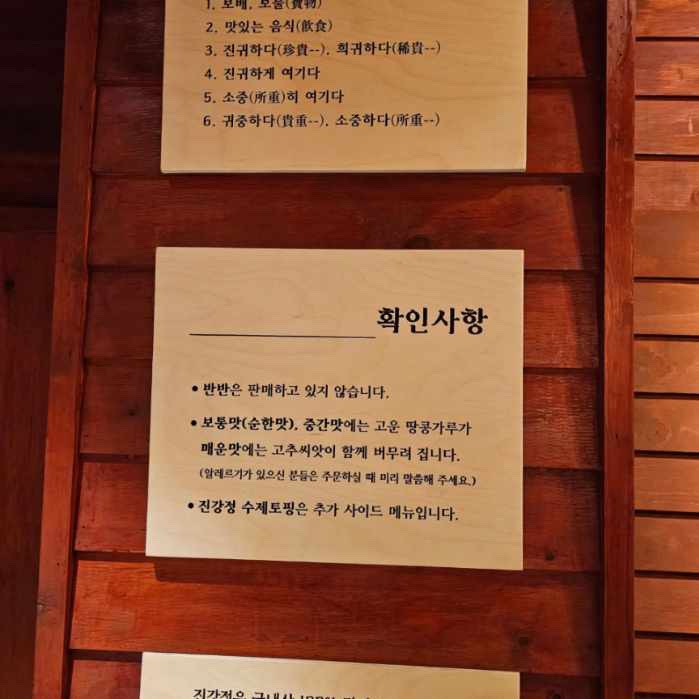 1. 보배, 보물(寶物)
2. 맛있는 음식(飮食)
3. 진귀하다(珍貴--), 희귀하다(稀貴--)
4. 진귀하게 여기다
5. 소중(所重)히 여기다
6. 귀중하다(貴重--), 소중하다(所重--)
확인사항
• 반반은 판매하고 있지 않습니다.
• 보통맛(순한맛), 중간맛에는 고운 땅콩가루가
매운맛에는 고추씨앗이 함께 버무려 집니다.
(알레르기가 있으신 분들은 주문하실 때 미리 말씀해 주세요.)
• 진강정 수제토핑은 추가 사이드 메뉴입니다.
진강정은 국내산 100%